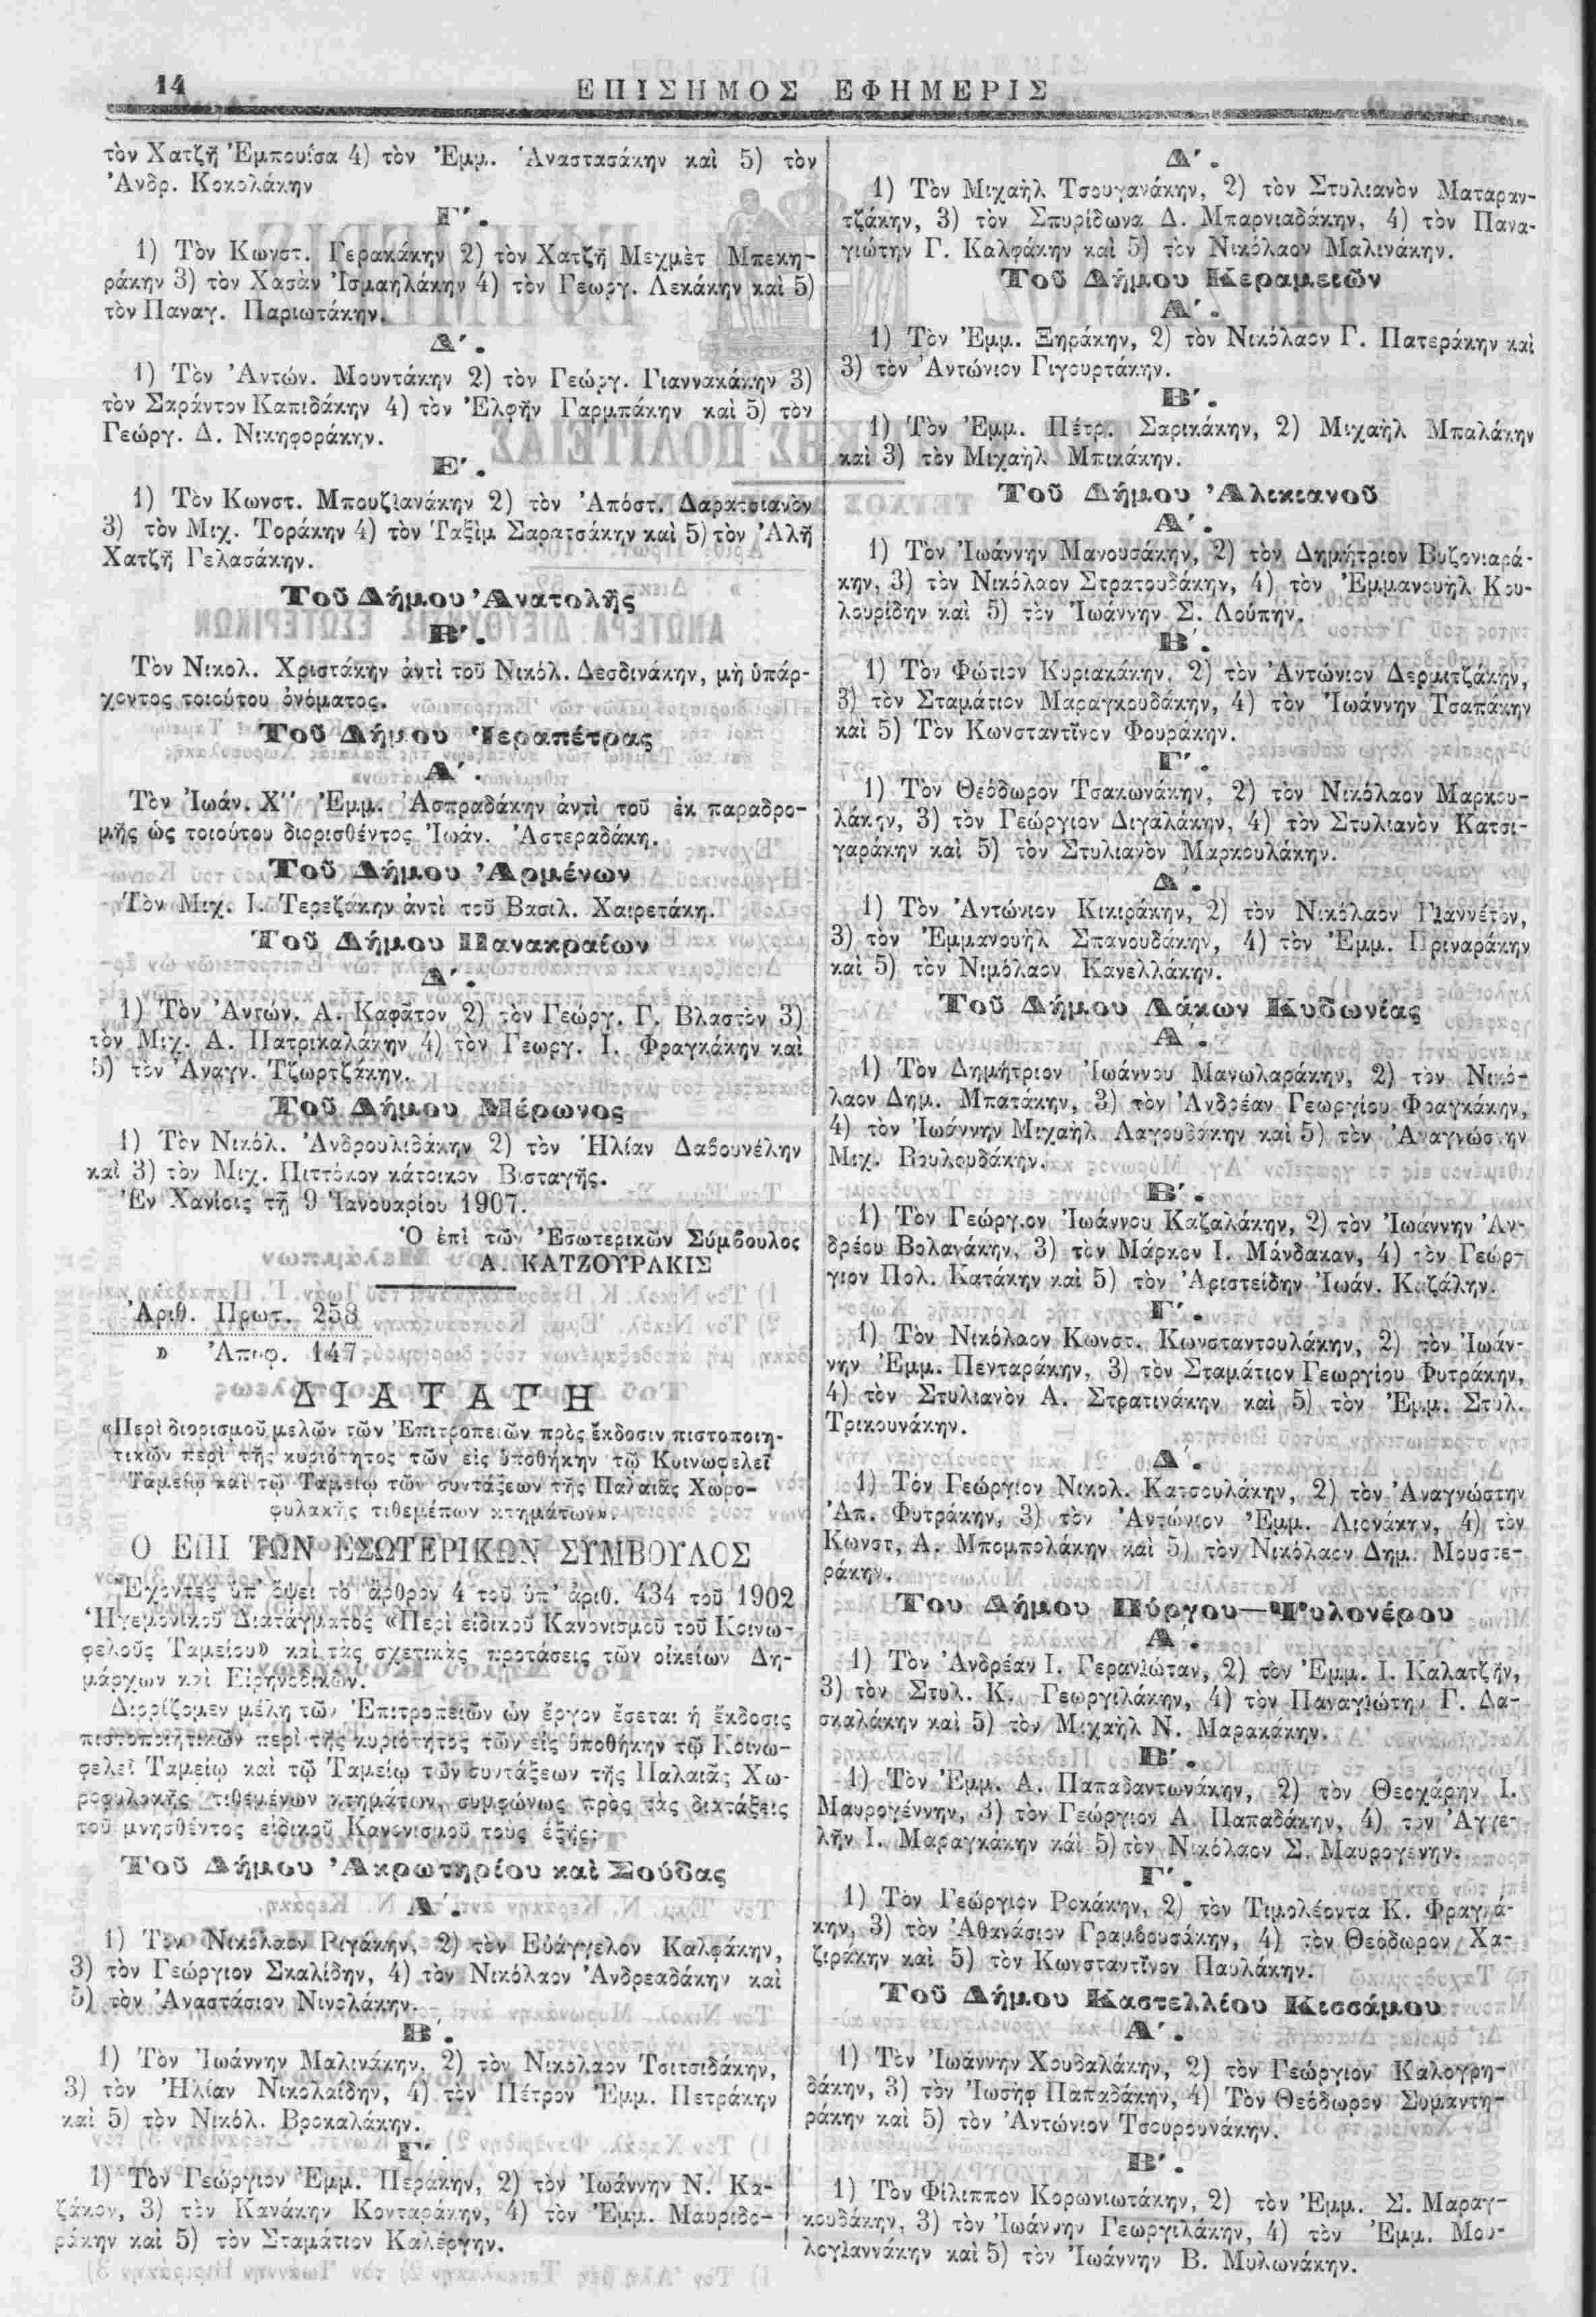 14
ΕΠΙΣΗΜΟΣ ΕΦΗΜΕΡΙΣ
τὸν Χατζῆ Ἐμπουΐσα 4) τὸν Ἐμμ. Ἀναστασάκην καὶ 5) τὸν
Ἀνδρ. Κοκολάκην
Γ′.
1) Τὸν Κωνστ. Γερακάκην 2) τὸν Χατζῆ Μεχμὲτ Μπεκη-
ράκην 3) τὸν Χασὰν Ἰσμαηλάκην 4) τὸν Γεωργ. Λεκάκην καὶ 5)
τὸν Παναγ. Παριωτάκην.
Δ′.
1) Τὸν Ἀντών. Μουντάκην 2) τὸν Γεώργ. Γιαννακάκην 3)
τὸν Σαράντον Καπιδάκην 4) τὸν Ἐλφῆν Γαρμπάκην καὶ 5) τὸν
Γεώργ. Δ. Νικηφοράκην.
Ε′.
1) Τὸν Κωνστ. Μπουζιανάκην 2) τὸν Ἀπόστ. Δαρατσιανὸν
3) τὸν Μιχ. Τοράκην 4) τὸν Ταξὶμ Σαρατσάκην καὶ 5) τὸν Ἀλῆ
Χατζῆ Γελασάκην.
Τοῦ Δήμου Ἀνατολῆς
Β′.
Τὸν Νικολ. Χριστάκην ἀντὶ τοῦ Νικόλ. Δεσδινάκην, μὴ ὑπάρ-
χοντος τοιούτου ὀνόματος.
Τοῦ Δήμου Ἱεραπέτρας
Α′.
Τὸν Ἰωάν. Χ′′ Ἐμμ. Ἀσπραδάκην ἀντὶ τοῦ ἐκ παραδρο-
μῆς ὡς τοιούτου διορισθέντος Ἰωάν. Ἀστεραδάκη.
Τοῦ Δήμου Ἀρμένων
Τὸν Μιχ. Ι. Τερεζάκην ἀντὶ τοῦ Βασιλ. Χαιρετάκη.
Τοῦ Δήμου Πανακραίων
Δ′.
1) Τὸν Ἀντών. Α. Καφᾶτον 2) τὸν Γεώργ. Γ. Βλαστὸν 3)
τὸν Μιχ. Α. Πατρικαλάκην 4) τὸν Γεωργ. Ι. Φραγκάκην καὶ
5) τὸν Ἀναγν. Τζωρτζάκην.
Τοῦ Δήμου Μέρωνος
1) Τὸν Νικόλ. Ἀνδρουλιδάκην 2) τὸν Ἠλίαν Δαβουνέλην
καὶ 3) τὸν Μιχ. Πιττόκον κάτοικον Βισταγῆς.
Ἐν Χανίοις τῇ 9 Ἰανουαρίου 1907.
Ὁ ἐπὶ τῶν Ἐσωτερικῶν Σύμβουλος
Α. ΚΑΤΖΟΥΡΑΚΙΣ
Ἀριθ. Πρωτ. 258
» Ἀπ·φ. 147
ΔΙΑΤΑΓΗ
«Περὶ διορισμοῦ μελῶν τῶν Ἐπιτροπειῶν πρὸς ἔκδοσιν πιστοποιη-
τικῶν περὶ τῆς κυριότητος τῶν εἰς ὑποθήκην τῷ Κοινωφελεῖ
Ταμείῳ καὶ τῷ Ταμείῳ τῶν συντάξεων τῆς Παλαιᾶς Χωρο-
φυλακῆς τιθεμέπων κτημάτων».
Ο ΕΠΙ ΤΩΝ ΕΣΩΤΕΡΙΚΩΝ ΣΥΜΒΟΥΛΟΣ
Ἔχοντες ὑπ' ὄψει τὸ ἄρθρον 4 τοῦ ὑπ' ἀριθ. 434 τοῦ 1902
Ἡγεμονικοῦ Διατάγματος «Περὶ εἰδικοῦ Κανονισμοῦ τοῦ Κοινω-
φελοῦς Ταμείου» καὶ τὰς σχετικὰς προτάσεις τῶν οἰκείων Δη-
μάρχων καὶ Εἰρηνοδικῶν.
Διορίζομεν μέλη τῶν Ἐπιτροπειῶν ὧν ἔργον ἔσεται ἡ ἔκδοσις
πιστοποιητικῶν περὶ τῆς κυριότητος τῶν εἰς ὑποθήκην τῷ Κοινω-
φελεῖ Ταμείῳ καὶ τῷ Ταμείῳ τῶν συντάξεων τῆς Παλαιᾶς Χω-
ροφυλακῆς τιθεμένων κτημάτων, συμφώνως πρὸς τὰς διατάξεις
τοῦ μνησθέντος εἰδικοῦ Κανονισμοῦ τοὺς ἑξῆς:
Τοῦ Δήμου Ἀκρωτηρίου καὶ Σούδας
Α′.
1) Τὸν Νικόλαον Ριγάκην, 2) τὸν Εὐάγγελον Καλφάκην,
3) τὸν Γεώργιον Σκαλίδην, 4) τὸν Νικόλαον Ἀνδρεαδάκην καὶ
5) τὸν Ἀναστάσιον Νινολάκην.
Β′.
1) Τὸν Ἰωάννην Μαλινάκην, 2) τὸν Νικόλαον Τσιτσιδάκην,
3) τὸν Ἠλίαν Νικολαΐδην, 4) τὸν Πέτρον Ἐμμ. Πετράκην
καὶ 5) τὸν Νικόλ. Βροκαλάκην.
Γ′.
1) Τὸν Γεώργιον Ἐμμ. Περάκην, 2) τὸν Ἰωάννην Ν. Κα-
ζάκον, 3) τὸν Κανάκην Κονταράκην, 4) τὸν Ἐμμ. Μαυριδο-
ράκην καὶ 5) τὸν Σταμάτιον Καλέργην.
Δ′.
1) Τὸν Μιχαὴλ Τσουγανάκην, 2) τὸν Στυλιανὸν Ματαραν-
τζάκην, 3) τὸν Σπυρίδωνα Δ. Μπαρνιαδάκην, 4) τὸν Πανα-
γιώτην Γ. Καλφάκην καὶ 5) τὸν Νικόλαον Μαλινάκην.
Τοῦ Δήμου Κεραμειῶν
Α′.
1) Τὸν Ἐμμ. Ξηράκην, 2) τὸν Νικόλαον Γ. Πατεράκην καὶ
3) τὸν Ἀντώνιον Γιγουρτάκην.
Β′.
1) Τὸν Ἐμμ. Πέτρ. Σαρικάκην, 2) Μιχαὴλ Μπαλάκην
καὶ 3) τὸν Μιχαὴλ Μπικάκην.
Τοῦ Δήμου Ἀλικιανοῦ
Α′.
1) Τὸν Ἰωάννην Μανουσάκην, 2) τὸν Δημήτριον Βυζονιαρά-
κην, 3) τὸν Νικόλαον Στρατουδάκην, 4) τὸν Ἐμμανουὴλ Κου-
λουρίδην καὶ 5) τὸν Ἰωάννην Σ. Λούπην.
Β′.
1) Τὸν Φώτιον Κυριακάκην, 2) τὸν Ἀντώνιον Δερμιτζάκην,
3) τὸν Σταμάτιον Μαραγκουδάκην, 4) τὸν Ἰωάννην Τσαπάκην
καὶ 5) Τὸν Κωνσταντῖνον Φουράκην.
Γ′.
1) Τὸν Θεόδωρον Τσακωνάκην, 2) τὸν Νικόλαον Μαρκου-
λάκην, 3) τὸν Γεώργιον Διγαλάκην, 4) τὸν Στυλιανὸν Κατσι-
γαράκην καὶ 5) τὸν Στυλιανὸν Μαρκουλάκην.
Δ′.
1) Τὸν Ἀντώνιον Κικιράκην, 2) τὸν Νικόλαον Γιαννέτον,
3) τὸν Ἐμμανουὴλ Σπανουδάκην, 4) τὸν Ἐμμ. Πριναράκην
καὶ 5) τὸν Νιμόλαον Κανελλάκην.
Τοῦ Δήμου Λάκων Κυδωνίας
Α′.
1) Τὸν Δημήτριον Ἰωάννου Μανωλαράκην, 2) τὸν Νικό-
λαον Δημ. Μπατάκην, 3) τὸν Ἀνδρέαν Γεωργίου Φραγκάκην,
4) τὸν Ἰωάννην Μιχαὴλ Λαγουδάκην καὶ 5) τὸν Ἀναγνώστην
Μιχ. Βουλουδάκην.
Β′.
1) Τὸν Γεώργιον Ἰωάννου Καζαλάκην, 2) τὸν Ἰωάννην Ἀν-
δρέου Βολανάκην, 3) τὸν Μάρκον Ι. Μάνδακαν, 4) τὸν Γεώρ-
γιον Πολ. Κατάκην καὶ 5) τὸν Ἀριστείδην Ἰωάν. Καζάλην.
Γ′.
1) Τὸν Νικόλαον Κωνστ. Κωνσταντουλάκην, 2) τὸν Ἰωάν-
νην Ἐμμ. Πενταράκην, 3) τὸν Σταμάτιον Γεωργίου Φυτράκην,
4) τὸν Στυλιανὸν Α. Στρατινάκην καὶ 5) τὸν Ἐμμ. Στυλ.
Τρικουνάκην.
Δ′.
1) Τὸν Γεώργιον Νικολ. Κατσουλάκην, 2) τὸν Ἀναγνώστην
Ἀπ. Φυτράκην, 3) τὸν Ἀντώνιον Ἐμμ. Λιονάκην, 4) τὸν
Κωνστ, Α. Μπομπολάκην καὶ 5) τὸν Νικόλαον Δημ. Μουστε-
ράκην.
Του Δήμου Πύργου—Ψυλονέρου
Α′.
1) Τὸν Ἀνδρέαν Ι. Γερανιώταν, 2) τὸν Ἐμμ. Ι. Καλατζῆν,
3) τὸν Στυλ. Κ. Γεωργιλάκην, 4) τὸν Παναγιώτην Γ. Δα-
σκαλάκην καὶ 5) τὸν Μιχαὴλ Ν. Μαρακάκην.
Β′.
1) Τὸν Ἐμμ. Α. Παπαδαντωνάκην, 2) τὸν Θεοχάρην Ι.
Μαυρογέννην, 3) τὸν Γεώργιον Α. Παπαδάκην, 4) τὸν Ἀγγε-
λῆν Ι. Μαραγκάκην καὶ 5) τὸν Νικόλαον Σ. Μαυρογένην.
Γ′.
1) Τὸν Γεώργιον Ροκάκην, 2) τὸν Τιμολέοντα Κ. Φραγκά-
κην, 3) τὸν Ἀθανάσιον Γραμβουσάκην, 4) τὸν Θεόδωρον Χα-
ζιράκην καὶ 5) τὸν Κωνσταντῖνον Παυλάκην.
Τοῦ Δήμου Καστελλίου Κισσάμου
Α′.
1) Τὸν Ἰωάννην Χουδαλάκην, 2) τὸν Γεώργιον Καλογρη-
δάκην, 3) τὸν Ἰωσὴφ Παπαδάκην, 4) Τὸν Θεόδωρον Συμαντη-
ράκην καὶ 5) τὸν Ἀντώνιον Τσουρουνάκην.
Β′.
1) Τὸν Φίλιππον Κορωνιωτάκην, 2) τὸν Ἐμμ. Σ. Μαραγ-
κουδάκην, 3) τὸν Ἰωάννην Γεωργιλάκην, 4) τὸν Ἐμμ. Μου-
λογιαννάκην καὶ 5) τὸν Ἰωάννην Β. Μυλωνάκην.